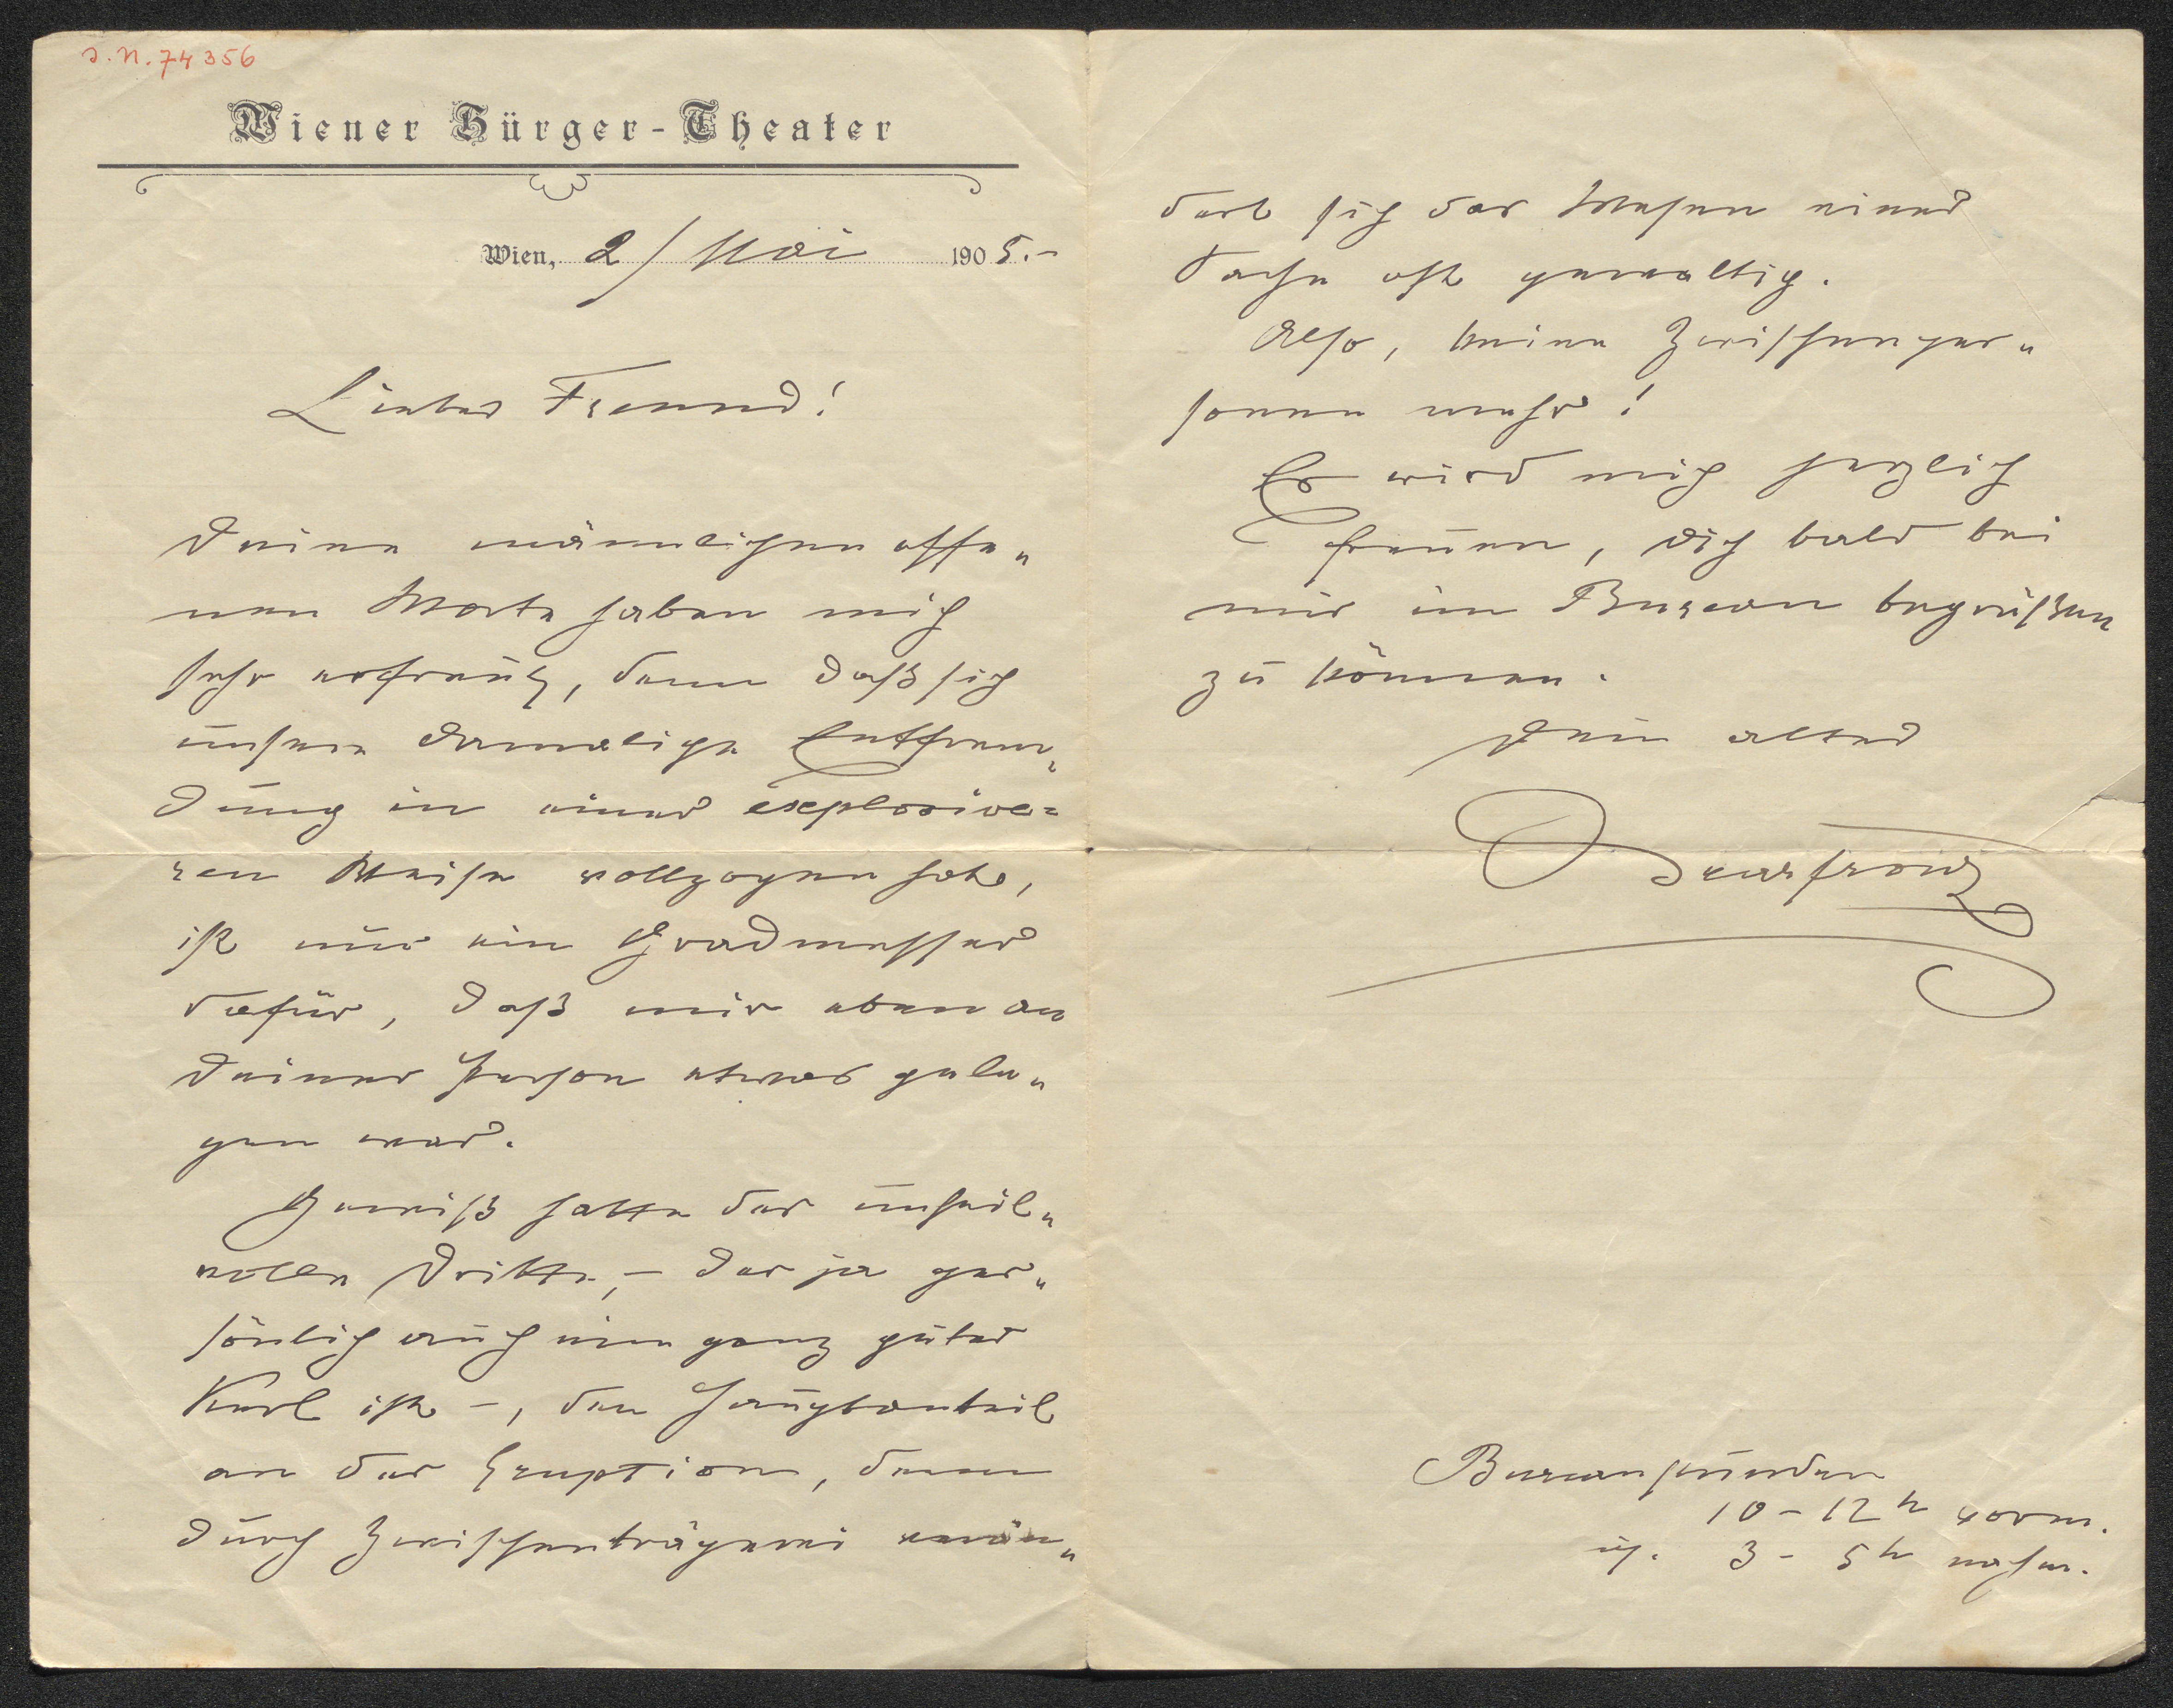 I. N. 74356
Wiener Bürger-Theater
Wien, 2/Mai 1905.-
Lieber Freund!
Deine männlichen offe„
nen Worte haben mich
sehr erfreut, denn daß sich
unsere damalige Entfrem„
dung in einer explosive=
ren Weise vollzogen hat,
ist nur ein Gradmesser
dafür, daß mir eben an
Deiner Person etwas gele„
gen war.
Gewiß hatte der unheil„
volle Dritte, - der ja per„
sönlich auch ein ganz guter
Kerl ist -, den Hauptanteil
an der Eruption, denn
durch Zwischenträgerei verän„
dert sich das Wesen einer
Sache oft gewaltig.
Also, keine Zwischenper„
sonen mehr!
Es wird mich herzlich
freuen, Dich bald bei
mir im Bureau begrüßen
zu können.
Dein alter
Bureaustunden
10-12h vorm.
u. 3-5h nachm.